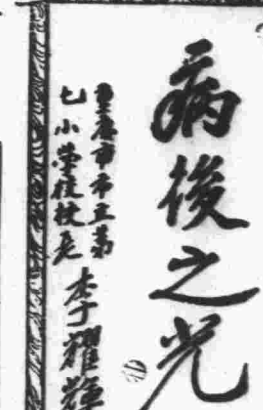 病後之光
重慶市市立第
七小學校校長
李子耀輝